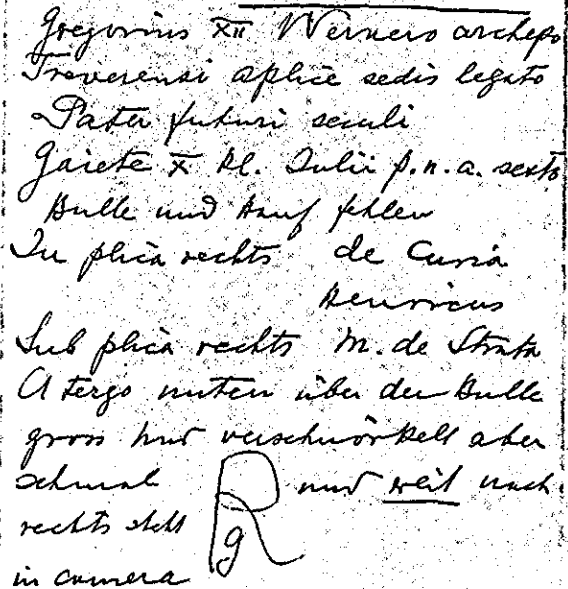 Gregorius XII Wernero archepo
Treverensi aplice sedis legato
Pater futuri seculi
Gaiete X kl. Julii p.n.a. sexto
Bulle und Hanf fehlen
In plica rechts de Curia
Henricus
Sub plica rechts M. de Strata
A tergo unten über der Bulle
gross und verschnörkelt aber
schmal R und weit nach
rechts steht g
in camera